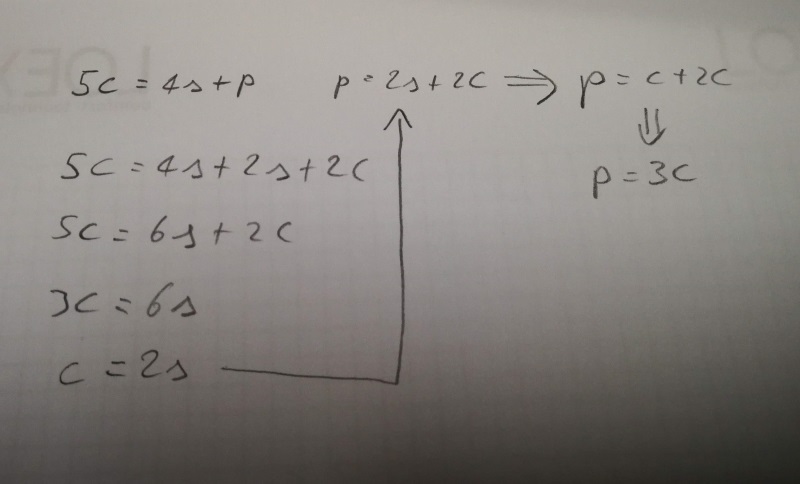 5c = 4s + p p = 2s + 2c ⇒ p = c + 2c
⇓
5c = 4s + 2s + 2c p = 3c
5c = 6s + 2c
3c = 6s
c = 2s